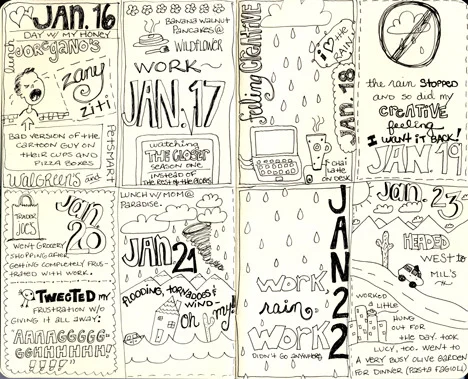 JAN. 16
DAY W/ MY HONEY
lunch
JOREGANO'S
ZANY
ZITI
BAD VERSION OF THE
CARTOON GUY ON
THEIR CUPS AND
PIZZA BOXES.
WALGREENS and
PETSMART
BANANA WALNUT
PANCAKES @
WILDFLOWER
WORK~
JAN. 17
watching
THE CLOSER
SEASON ONE
INSTEAD OF
THE REST OF THE GLOBES
feeling CREATIVE
i ♥ THE
RAIN!
JAN. 18
CHAI
LATTE
ON DESK
the rain STOPPED
AND SO DID MY
CREATIVE
feeling
I WANT IT BACK!
JAN. 19
TRADER
JOE'S
Jan.
20
WENT GROCERY
SHOPPING AFTER
GETTING COMPLETELY FRUS-
TRATED WITH WORK.
TWEETED MY
FRUSTRATION W/O
GIVING IT ALL AWAY:
"AAAAGGGGG-
GGHHHHHHH!
!!!!"
LUNCH W/ MOM @
PARADISE.
JAN 21
FLOODING, TORNADOES &
WIND-
oh my!
JAN 22
WORK
rain
WORK
DIDN'T GO ANYWHERE
Jan. 23~
HEADED
WEST to
MIL'S
WORKED
LITTLE
HUNG
OUT FOR
THE DAY. TOOK
LUCY, TOO. WENT TO
A VERY BUSY OLIVE GARDEN
FOR DINNER (PASTA FAGIOLI)